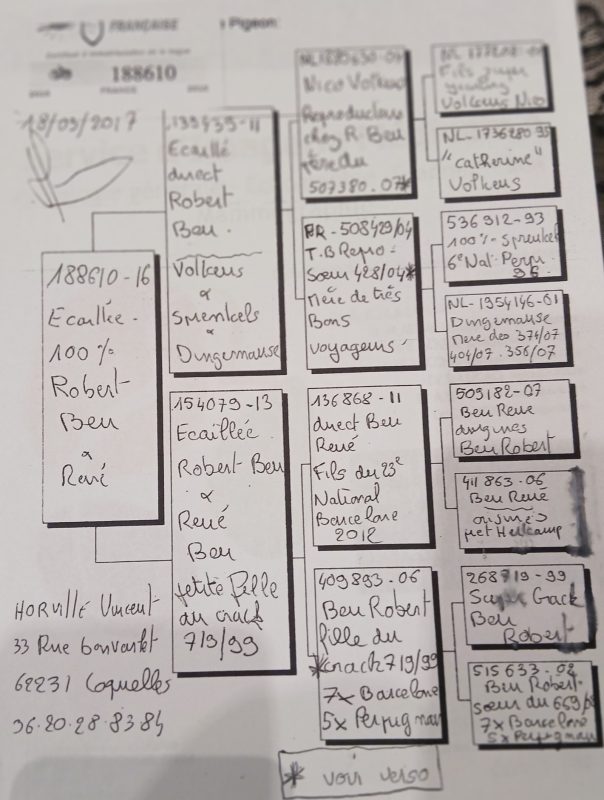 FRANÇAISE
Pigeon:
188610
FRANCE
18/03/2017
188610-16
Ecaillée.
100%
Robert
Ben
&
René
135435-11
Ecaillé
direct
Robert
Ben.
Volkens
&
Sprenkels
&
Dingemanse
154079-13
Ecaillée
Robert Ben
&
René
Ben
petite fille
du crack
719/99
Nico Volkens
Reproducteur
chez R. Ben
père du
507380.07*
BR-508429/04
T.B Repro.
Sœur 428/04*
Mère de très
Bons
voyageurs.
136868-11
direct Ben
René
Fils du 23e
National
Barcelone
2012
409893-06
Ben Robert
fille du
*crack 719/99
7x Barcelone
5x Perpignan
Fils super
yearling
Volkens Nico
NL-1736280 95
"Catherine"
Volkens
536912-93
100% Sprenkel
6e Nat. Perpi.
NL-1954146-01
Dingemanse
Mère des 374/07
404/07.356/07
505182-07
Ben René
origines
Ben Robert
411 863.06
Ben René
origines
268719-99
Super Crack
Ben
Robert
515633.02
Ben Robert.
sœur du
7x Barcelone
5x Perpignan
HORVILLE Vincent
33 Rue
62231 Coquelles
06.20.28.83.84
* voir verso